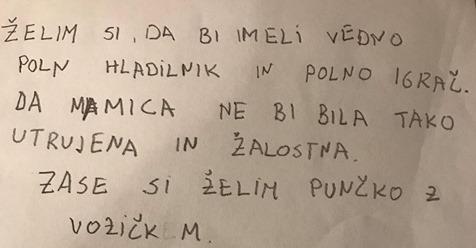 ŽELIM SI, DA BI IMELI VEDNO
POLN HLADILNIK IN POLNO IGRAČ.
DA MAMICA NE BI BILA TAKO
UTRUJENA IN ŽALOSTNA.
ZASE SI ŽELIM PUNČKO Z
VOZIČKEM.